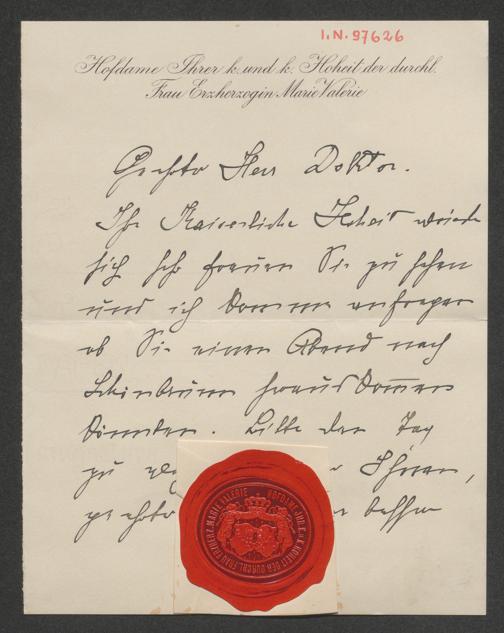 I.N. 97626
Hofdame Ihrer k. und k. Hoheit der durchl.
Frau Erzherzogin Marie Valerie
Geehrter Herr Doktor.
Ihre Kaiserliche Hoheit würde
sich sehr freuen Sie zu sehen
und ich komme anfragen
ob Sie einen Abend nach
Schönbrunn heraus kommen
könnten. Bitte den Tag
zu Ihnen,
geehrter
HOFDAME IHR. K. u. K. HOHEIT DER DURCHL. FRAU ERZHERZ. MARIE VALERIE